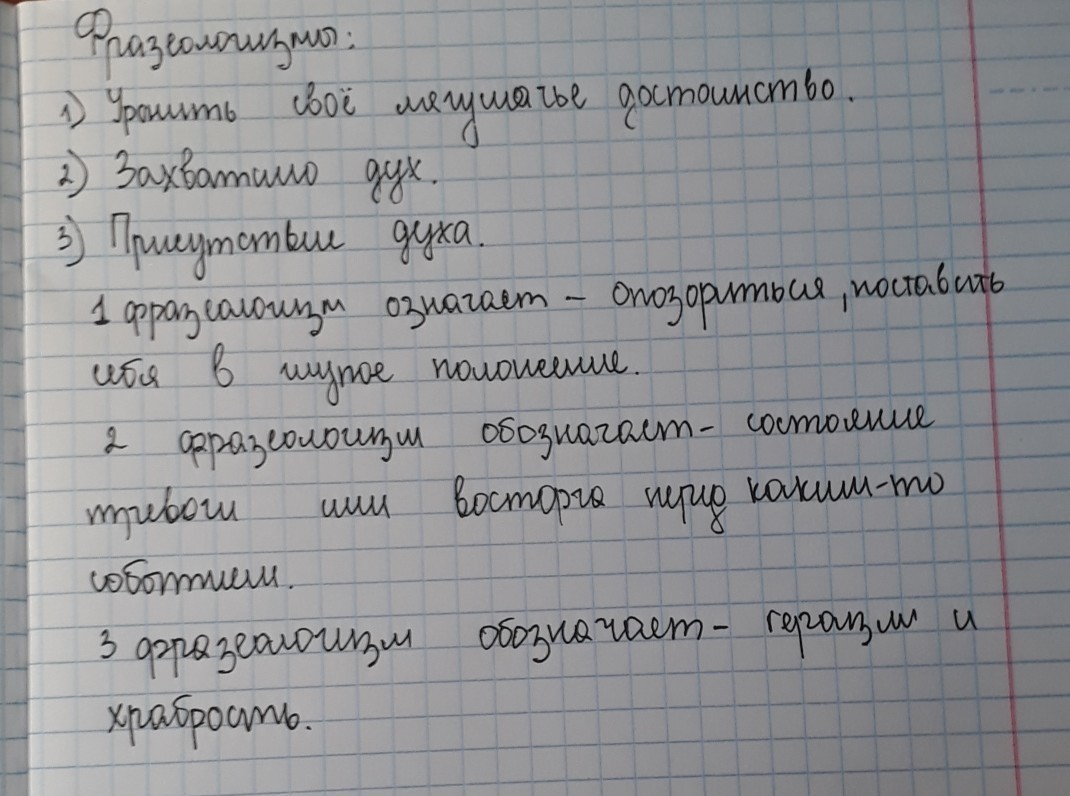 Фразеологизмы:
1) Уронить своё лягушачье достоинство.
2) Захватило дух.
3) Присутствие духа.
1 фразеологизм означает - опозориться, поставить
себя в глупое положение.
2 фразеологизм обозначает - состояние
тревоги или восторга перед каким-то
событием.
3 фразеологизм обозначает - героизм и
храбрость.